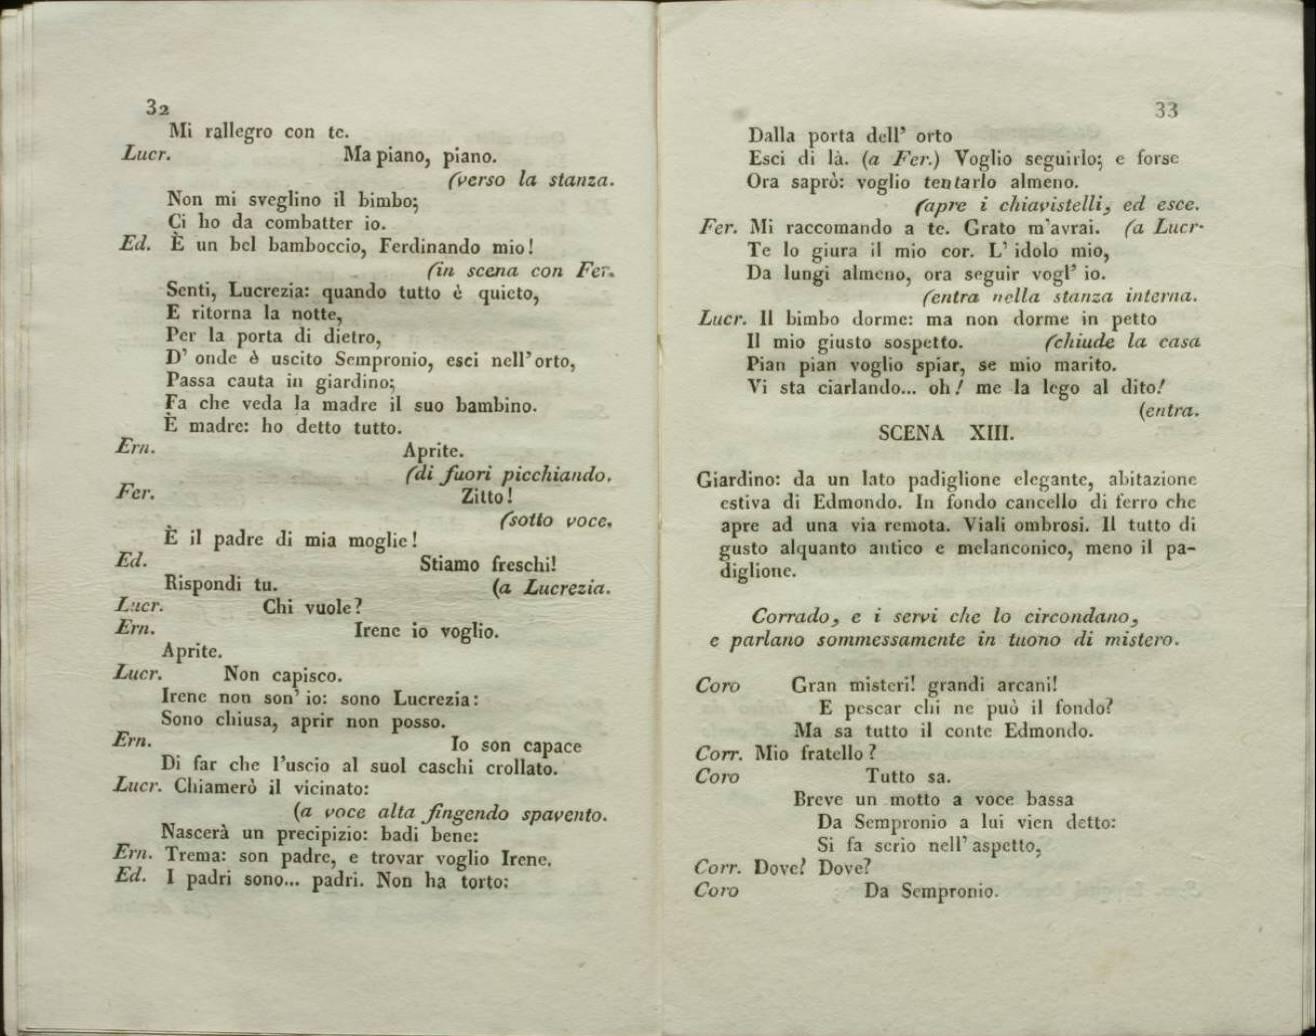 32
Mi rallegro con te.
Lucr. Ma piano, piano.
(verso la stanza.
Non mi sveglino il bimbo;
Ci ho da combatter io.
Ed. È un bel bamboccio, Ferdinando mio!
(in scena con Fer.
Senti, Lucrezia: quando tutto è quieto,
E ritorna la notte,
Per la porta di dietro,
D' onde è uscito Sempronio, esci nell'orto,
Passa cauta in giardino;
Fa che veda la madre il suo bambino.
È madre: ho detto tutto.
Ern. Aprite.
(di fuori picchiando.
Fer. Zitto!
(sotto voce.
È il padre di mia moglie!
Ed. Stiamo freschi!
Rispondi tu. (a Lucrezia.
Lucr. Chi vuole?
Ern. Irene io voglio.
Aprite.
Lucr. Non capisco.
Irene non son' io: sono Lucrezia:
Sono chiusa, aprir non posso.
Ern. Io son capace
Di far che l'uscio al suol caschi crollato.
Lucr. Chiamerò il vicinato:
(a voce alta fingendo spavento.
Nascerà un precipizio: badi bene:
Ern. Trema: son padre, e trovar voglio Irene.
Ed. I padri sono... padri. Non ha torto:
33
Dalla porta dell' orto
Esci di là. (a Fer.) Voglio seguirlo; e forse
Ora saprò: voglio tentarlo almeno.
(apre i chiavistelli, ed esce.
Fer. Mi raccomando a te. Grato m'avrai. (a Lucr.
Te lo giura il mio cor. L' idolo mio,
Da lungi almeno, ora seguir vogl' io.
(entra nella stanza interna.
Lucr. Il bimbo dorme: ma non dorme in petto
Il mio giusto sospetto. (chiude la casa
Pian pian voglio spiar, se mio marito.
Vi sta ciarlando... oh! me la lego al dito!
(entra.
SCENA XIII.
Giardino: da un lato padiglione elegante, abitazione
estiva di Edmondo. In fondo cancello di ferro che
apre ad una via remota. Viali ombrosi. Il tutto di
gusto alquanto antico e melanconico, meno il pa-
diglione.
Corrado, e i servi che lo circondano,
e parlano sommessamente in tuono di mistero.
Coro Gran misteri! grandi arcani!
E pescar chi ne può il fondo?
Ma sa tutto il conte Edmondo.
Corr. Mio fratello?
Coro Tutto sa.
Breve un motto a voce bassa
Da Sempronio a lui vien detto:
Si fa serio nell' aspetto,
Corr. Dove? Dove?
Coro Da Sempronio.